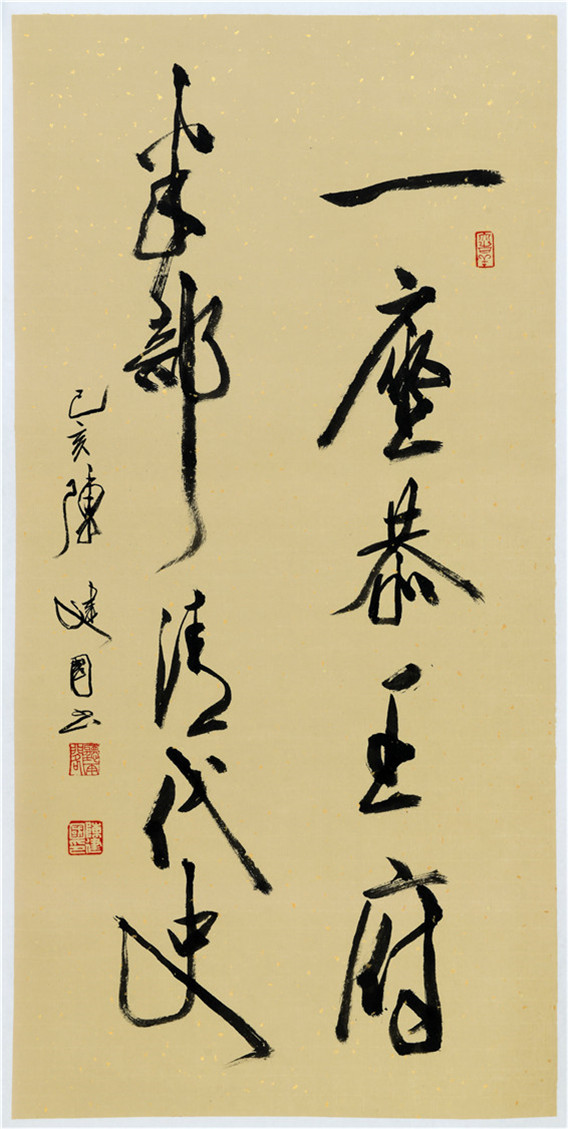 一座恭王府
半部清代史
己亥陳建國書
陳建國印